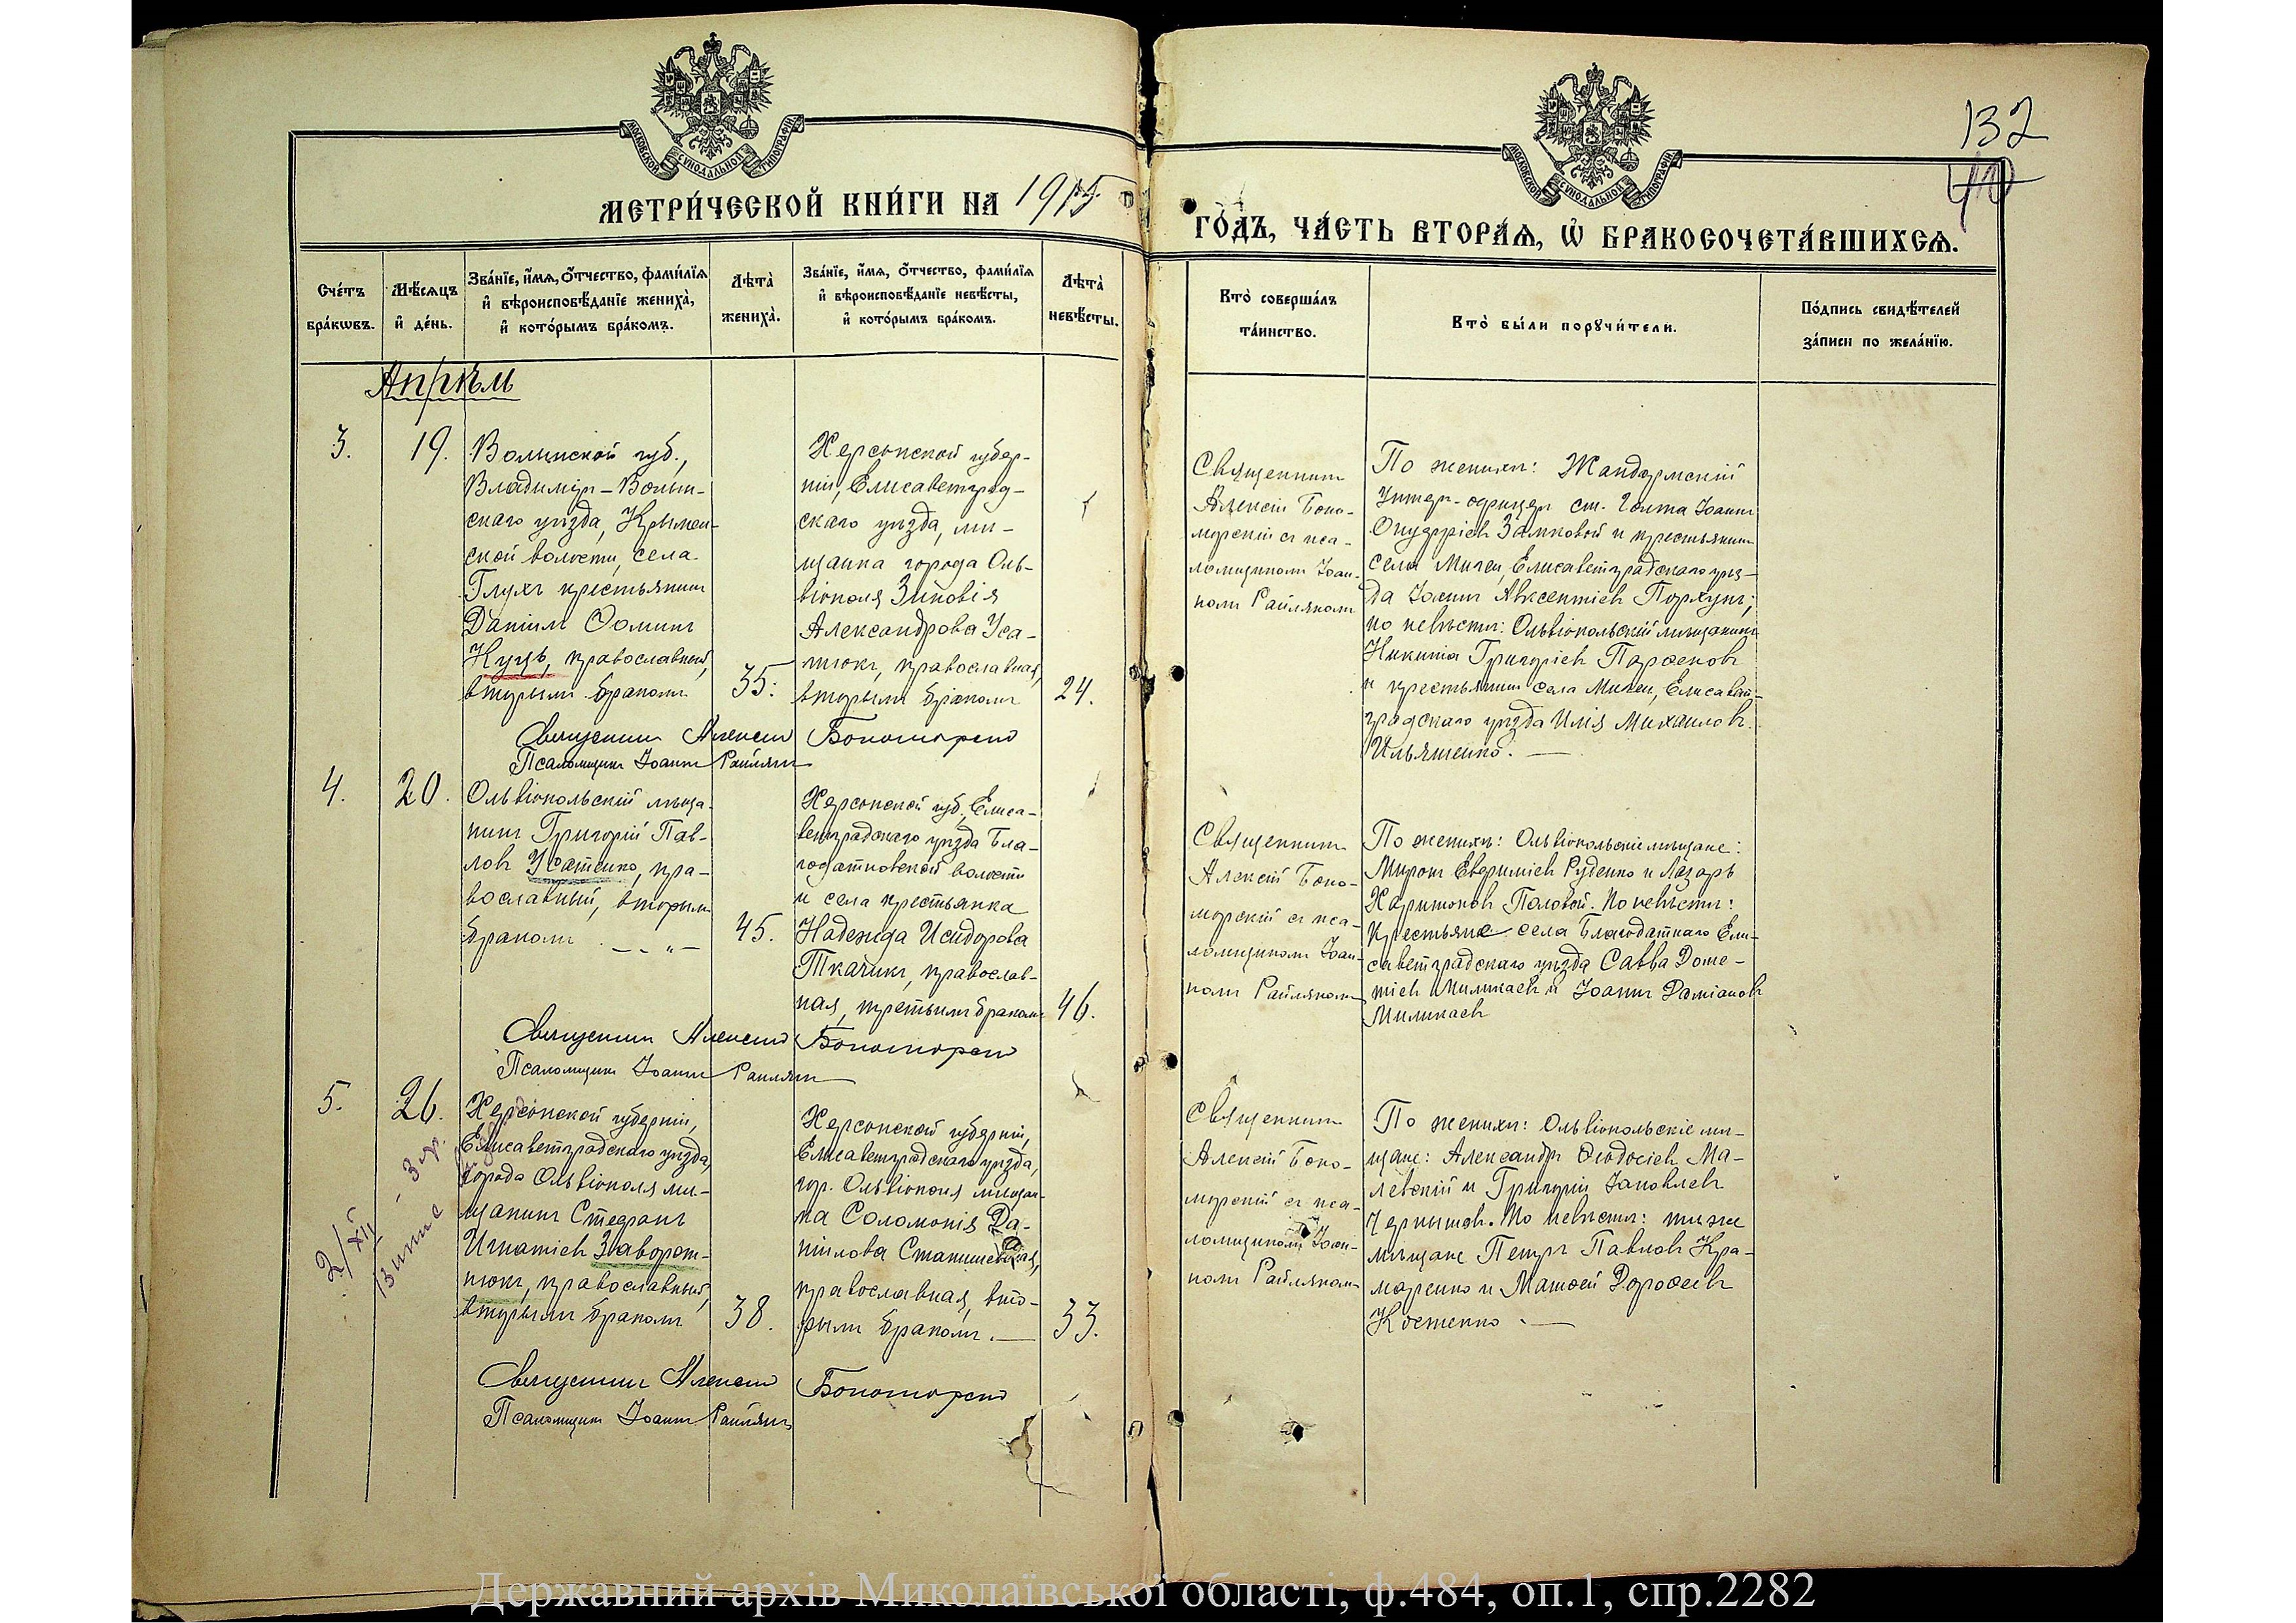 132
40
МОСКОВСКОЙ СѴНОДАЛЬНОЙ ТИПОГРАФІИ
МОСКОВСКОЙ СѴНОДАЛЬНОЙ ТИПОГРАФІИ
МЕТРИ́ЧЕСКОЙ КНИ́ГИ НА 1915
ГО́ДЪ, ЧА́СТЬ ВТОРА́Ѧ, Ѡ҆ БРАКОСОЧЕТА́ВШИХСѦ.
Сче́тъ
бра́кѡвъ.
Мѣ́сѧцъ
и҆ де́нь.
Зва́нїе, и҆́мѧ, ѻ҆́тчество, фами́лїѧ
и҆ вѣроисповѣ́данїе жениха̀,
и҆ кото́рымъ бра́комъ.
Лѣта̀
жениха̀.
Зва́нїе, и҆́мѧ, ѻ҆́тчество, фами́лїѧ
и҆ вѣроисповѣ́данїе невѣ́сты,
и҆ кото́рымъ бра́комъ.
Лѣта̀
невѣ́сты.
Кто̀ соверша́лъ
та́инство.
Кто̀ бы́ли порꙋчи́тели.
По́дпись свидѣ́телей
за́писи по жела́нїю.
Апрѣль
3.
19.
Волынской губ.,
Владимір-Волын-
скаго уѣзда,
ской волости, села
Глухъ крестьянинъ
Даніилъ Ѳоминъ
Куць, православный,
вторымъ бракомъ
35.
Херсонской губер-
ніи, Елисаветград-
скаго уѣзда, мѣ-
щанка города Оль-
віополя Зиновія
Александрова Уса-
тюкъ, православная,
вторымъ бракомъ
24.
Священникъ
Алексій Бѣло-
морскій съ пса-
ломщикомъ Іоан-
номъ Райлякомъ
По женихѣ: Жандармскій
Унтеръ-офицеръ ст. Голта Іоаннъ
Онуфріевъ Замковой и крестьянинъ
села Мигеи, Елисаветградскаго уѣз-
да Іоаннъ Авксентіевъ Порхунъ;
по невѣстѣ: Ольвіопольскій мѣщанинъ
Никита Григоріевъ Парѳеновъ
и крестьянинъ села Мигеи, Елисавет-
градскаго уѣзда Илія Михаиловъ
Ильяшенко.
Священникъ Алексій
Псаломщикъ Іоаннъ Райлякъ
4.
20.
Ольвіопольскій мѣща-
нинъ Григорій Пав-
ловъ Усатенко, пра-
вославный, вторымъ
бракомъ
45.
Херсонской губ., Елиса-
ветградскаго уѣзда Бла-
годатновской волости
и села крестьянка
Надежда Исидорова
Ткачикъ, православ-
ная, третьимъ бракомъ
46.
Священникъ
Алексій Бѣло-
морскій съ пса-
ломщикомъ Іоан-
номъ Райлякомъ
По женихѣ: Ольвіопольскіе мѣщане:
Миронъ Евфиміевъ Руденко и Лазарь
Харитоновъ Половой. По невѣстѣ:
Крестьяне села Благодатнаго Ели-
саветградскаго уѣзда Савва Доме-
тіевъ и Іоаннъ Даміановъ
Священникъ Алексій
Псаломщикъ Іоаннъ Райлякъ
5.
26.
Херсонской губерніи,
Елисаветградскаго уѣзда,
города Ольвіополя мѣ-
щанинъ Стефанъ
Игнатіевъ Заворот-
нюкъ, православный,
вторымъ бракомъ
38.
Херсонской губерніи,
Елисаветградскаго уѣзда,
гор. Ольвіополя мѣщан-
ка Соломонія Да-
ніилова
православная, вто-
рымъ бракомъ.
33.
Священникъ
Алексій Бѣло-
морскій съ пса-
ломщикомъ Іоан-
номъ Райлякомъ
По женихѣ: Ольвіопольскіе мѣ-
щане: Александръ Ѳеодосіевъ Ма-
левскій и Григорій Іаковлевъ
Чернышовъ. По невѣстѣ: тѣже
мѣщане Петръ Павловъ Кра-
маренко и Матѳей Дороѳеевъ
Костенко.
Священникъ Алексій
Псаломщикъ Іоаннъ Райлякъ
Державний архів Миколаївської області, ф.484, оп.1, спр.2282